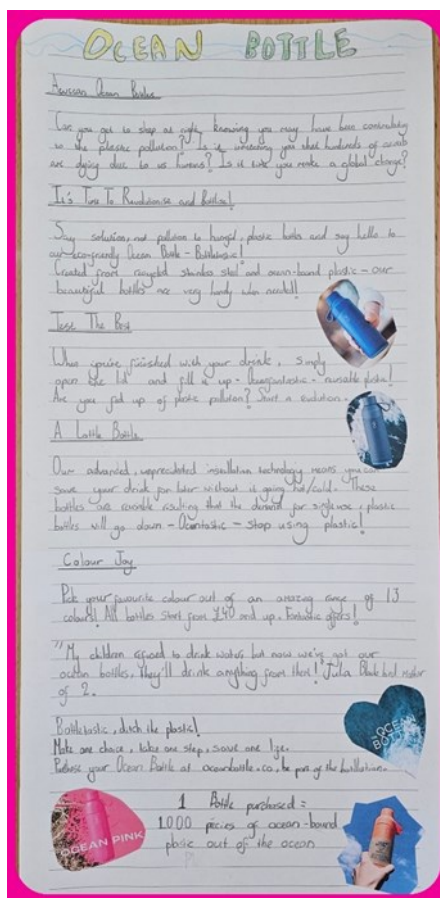 OCEAN BOTTLE
Ocean Bottle
Can you get to sleep at night, knowing you may have been contributing
to the plastic pollution? Is it unnerving you that hundreds of animals
are dying due to us humans? Is it time you make a global change?
It's Time To Revolutionise and Bottlise!
Say solution, not pollution to plastic bottles and say hello to
our eco-friendly Ocean Bottle - Bottletastic!
Created from recycled stainless steel and ocean-bound plastic - our
beautiful bottles are very handy when needed!
The Best
When you're finished with your drink, simply
open the lid and fill it up - Oceanfantastic - reusable plastic!
Are you fed up of plastic pollution? Start a evolution.
A Lottle Bottle
Our advanced, technology means you can
save your drink for later without it going hot/cold. These
bottles are reusable resulting that the demand for single use, plastic
bottles will go down - Oceantastic - stop using plastic!
Colour Joy
Pick your favourite colour out of an amazing range of 13
colours! All bottles start from £40 and up. Fantastic offers!
"My children refused to drink water, but now we've got our
ocean bottles, they'll drink anything from them!" Julia mother
of 2.
Bottletastic, ditch the plastic!
Make one choice, take one step, save one life.
Purchase your Ocean Bottle at oceanbottle.co, be part of the
OCEAN BOTTLE
1 Bottle purchased =
1000 pieces of ocean-bound
plastic out of the ocean
OCEAN PINK